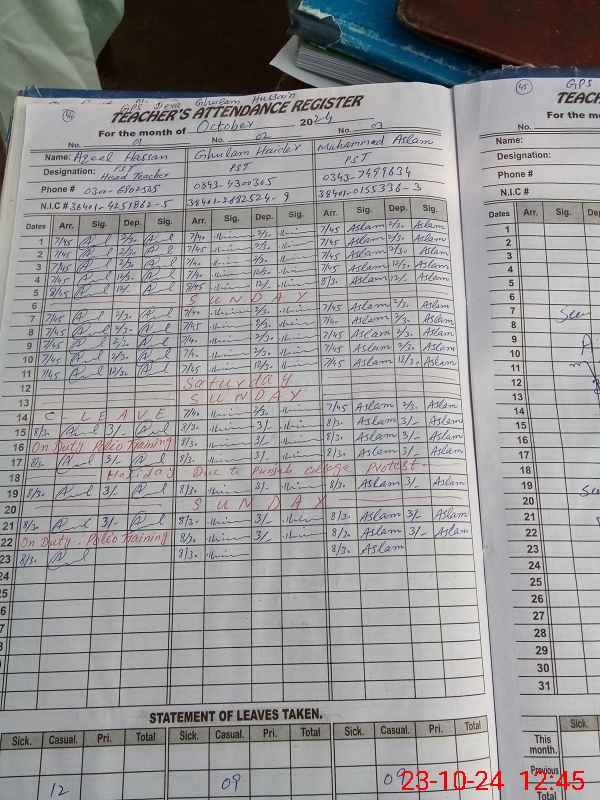 GPS Dera Ghulam Hussain
44
TEACHER'S ATTENDANCE REGISTER
For the month of October 2024
No. 01 No. 02 No. 03
Name: Hassan Ghulam Haider Muhammad Aslam
Designation: PST Head Teacher PST PST
Phone # 0343-4300305 0343-7499634
N.I.C # 38401-4251862-5 38401-2682524-9 38401-0155336-3
Dates Arr. Sig. Dep. Sig. Arr. Sig. Dep. Sig. Arr. Sig. Dep. Sig.
1 7/45 2/30 7/40 2/30 7/45 Aslam 2/30 Aslam
2 7/45 2/30 7/45 2/30 7/45 Aslam 2/30 Aslam
3 7/45 2/30 7/40 2/30 7/45 Aslam 2/30 Aslam
4 7/45 12/30 7/40 12/30 7/45 Aslam 12/30 Aslam
5 8/45 12/- 8/45 12/- 8/30 Aslam 12/- Aslam
6 SUNDAY
7 7/45 2/30 7/40 2/30 7/45 Aslam 2/30 Aslam
8 7/45 2/30 7/45 2/30 7/45 Aslam 2/30 Aslam
9 7/45 2/30 7/40 2/30 7/45 Aslam 2/30 Aslam
10 7/45 2/30 7/40 2/30 7/45 Aslam 2/30 Aslam
11 7/45 12/30 7/45 12/30 7/45 Aslam 12/30 Aslam
12 Saturday
13 SUNDAY
14 C-LEAVE 7/40 2/30 7/45 Aslam 2/30 Aslam
15 8/30 3/- 8/30 3/- 8/30 Aslam 3/- Aslam
16 On Duty Polio Training 8/30 3/- 8/30 Aslam 3/- Aslam
17 8/30 3/- 8/30 3/- 8/30 Aslam 3/- Aslam
18 Holiday Due to Punjab College Protest
19 8/30 3/- 8/30 3/- 8/30 Aslam 3/- Aslam
20 SUNDAY
21 8/30 3/- 8/30 3/- 8/30 Aslam 3/- Aslam
22 On Duty. Polio Training 8/30 3/- 8/30 Aslam 3/- Aslam
23 8/30 8/30 8/30 Aslam
24
25
26
27
28
29
STATEMENT OF LEAVES TAKEN.
Sick. Casual. Pri. Total Sick. Casual. Pri. Total Sick. Casual. Pri. Total
12 09 09
45 GPS
TEACH
For the mo
No.
Name:
Designation:
Phone #
N.I.C #
Dates Arr. Sig
1
2
3
4
5
6
7
8
9
10
11
12
13
14
15
16
17
18
19
20
21
22
23
24
25
26
27
28
29
30
31
Sick.
This month.
Previous
Total
23-10-24 12:45